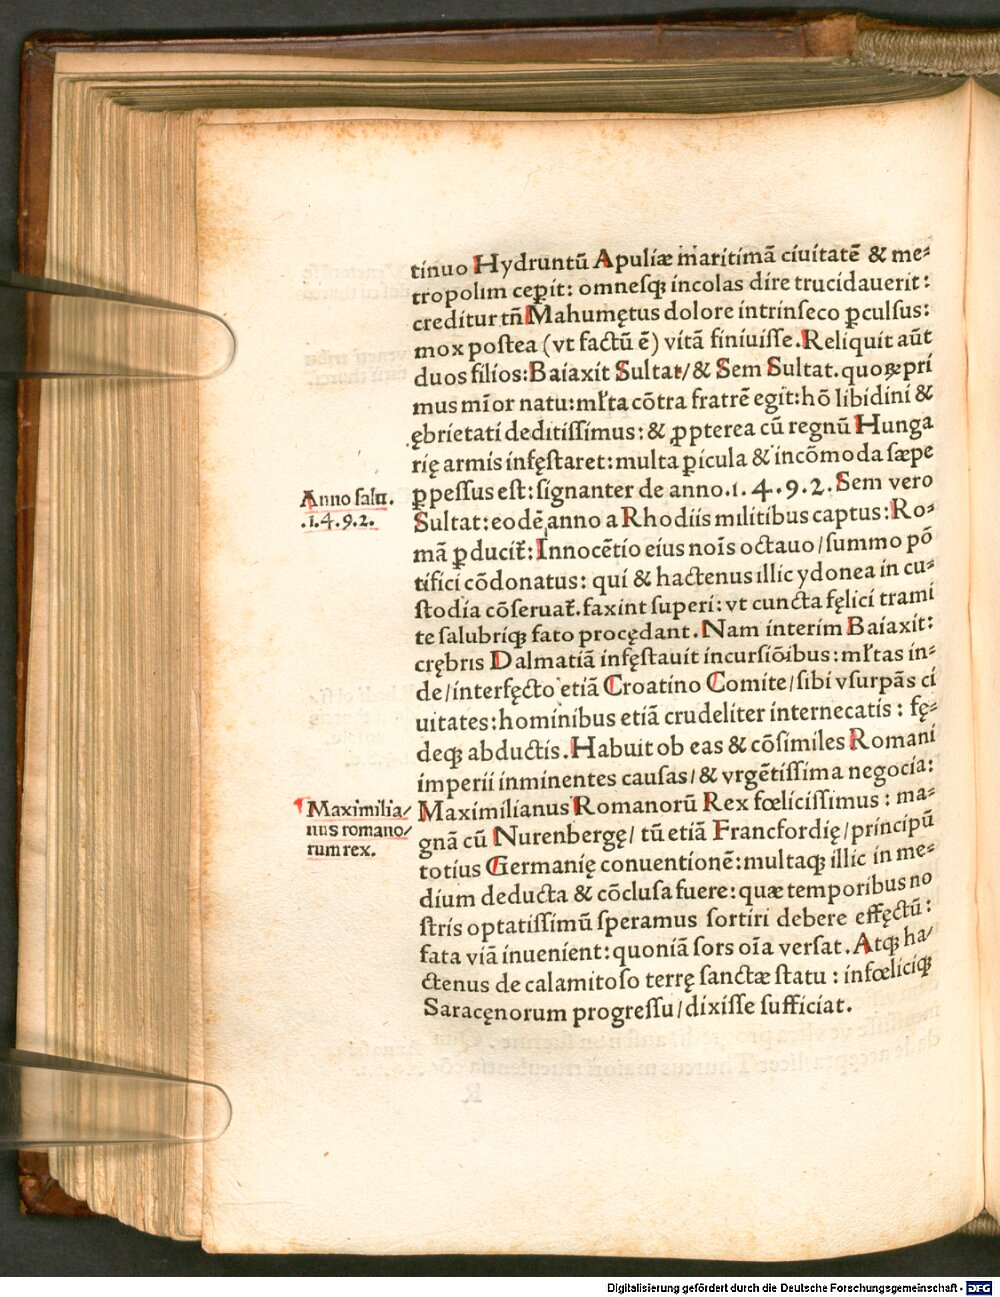 tinuo Hydruntū Apuliæ maritimā ciuitatē & me⸗
tropolim cepit: omnesq; incolas dire trucidauerit:
creditur tñ Mahumętus dolore intrinſeco ꝑculſus:
mox poſtea (vt factū ē) vitā finiuiſſe. Reliquit aūt
duos filios: Baiaxit Sultat/ & Sem Sultat. quoꝝ pri
mus mior natu: mlta cōtra fratrē egit: hō libidini &
ębrietati deditiſſimus: & ꝓpterea cū regnū Hunga
rię armis infęſtaret: multa ꝑicula & incōmoda ſæpe
ꝑpeſſus eſt: ſignanter de anno .1. 4. 9. 2. Sem vero
Anno ſalu.
.1. 4. 9. 2.
Sultat: eodē anno a Rhodiis militibus captus: Ro⸗
mā ꝑducit̃: Innocētio eius nois octauo/ ſummo pō
tifici cōdonatus: qui & hactenus illic ydonea in cu⸗
ſtodia cōſeruat̃. faxint ſuperi: vt cuncta fęlici trami
te ſalubriq; fato procędant. Nam interim Baiaxit:
crębris Dalmatiā infęſtauit incurſiōibus: mltas in⸗
de/ interfęcto etiā Croatino Comite/ ſibi vſurpās ci
uitates: hominibus etiā crudeliter internecatis: fę⸗
deq; abductis. Habuit ob eas & cōſimiles Romani
imperii inminentes cauſas/ & vrgētiſſima negocia:
Maximilia/
nus romano/
rum rex.
Maximilianus Romanorū Rex fœliciſſimus: ma⸗
gnā cū Nurenbergę/ tū etiā Francfordię/ principū
totius Germanię conuentionē: multaq; illic in me⸗
dium deducta & cōcluſa fuere: quæ temporibus no
ſtris optatiſſimū ſperamus ſortiri debere effęctū:
fata viā inuenient: quoniā ſors oīa verſat. Atq; ha/
ctenus de calamitoſo terrę ſanctæ ſtatu: infœliciq;
Saracęnorum progreſſu/ dixiſſe ſufficiat.
Digitalisierung gefördert durch die Deutsche Forschungsgemeinschaft - DFG